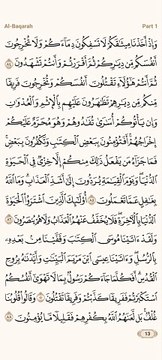 Al-Baqarah Part 1
وَإِذْ أَخَذْنَا مِيثَٰقَكُمْ لَا تَسْفِكُونَ دِمَآءَكُمْ وَلَا تُخْرِجُونَ
أَنفُسَكُم مِّن دِيَٰرِكُمْ ثُمَّ أَقْرَرْتُمْ وَأَنتُمْ تَشْهَدُونَ ٨٤
ثُمَّ أَنتُمْ هَٰٓؤُلَآءِ تَقْتُلُونَ أَنفُسَكُمْ وَتُخْرِجُونَ فَرِيقًا
مِّنكُم مِّن دِيَٰرِهِمْ تَظَٰهَرُونَ عَلَيْهِم بِٱلْإِثْمِ وَٱلْعُدْوَٰنِ
وَإِن يَأْتُوكُمْ أُسَٰرَىٰ تُفَٰدُوهُمْ وَهُوَ مُحَرَّمٌ عَلَيْكُمْ
إِخْرَاجُهُمْ ۚ أَفَتُؤْمِنُونَ بِبَعْضِ ٱلْكِتَٰبِ وَتَكْفُرُونَ بِبَعْضٍ ۚ
فَمَا جَزَآءُ مَن يَفْعَلُ ذَٰلِكَ مِنكُمْ إِلَّا خِزْىٌ فِى ٱلْحَيَوٰةِ
ٱلدُّنْيَا ۖ وَيَوْمَ ٱلْقِيَٰمَةِ يُرَدُّونَ إِلَىٰٓ أَشَدِّ ٱلْعَذَابِ ۗ وَمَا ٱللَّهُ
بِغَٰفِلٍ عَمَّا تَعْمَلُونَ ٨٥ أُو۟لَٰٓئِكَ ٱلَّذِينَ ٱشْتَرَوُا۟ ٱلْحَيَوٰةَ
ٱلدُّنْيَا بِٱلْءَاخِرَةِ ۖ فَلَا يُخَفَّفُ عَنْهُمُ ٱلْعَذَابُ وَلَا هُمْ يُنصَرُونَ ٨٦
وَلَقَدْ ءَاتَيْنَا مُوسَى ٱلْكِتَٰبَ وَقَفَّيْنَا مِنۢ بَعْدِهِۦ
بِٱلرُّسُلِ ۖ وَءَاتَيْنَا عِيسَى ٱبْنَ مَرْيَمَ ٱلْبَيِّنَٰتِ وَأَيَّدْنَٰهُ بِرُوحِ
ٱلْقُدُسِ ۗ أَفَكُلَّمَا جَآءَكُمْ رَسُولٌۢ بِمَا لَا تَهْوَىٰٓ أَنفُسُكُمُ
ٱسْتَكْبَرْتُمْ فَفَرِيقًا كَذَّبْتُمْ وَفَرِيقًا تَقْتُلُونَ ٨٧ وَقَالُوا۟ قُلُوبُنَا
غُلْفٌۢ ۚ بَل لَّعَنَهُمُ ٱللَّهُ بِكُفْرِهِمْ فَقَلِيلًا مَّا يُؤْمِنُونَ ٨٨
13